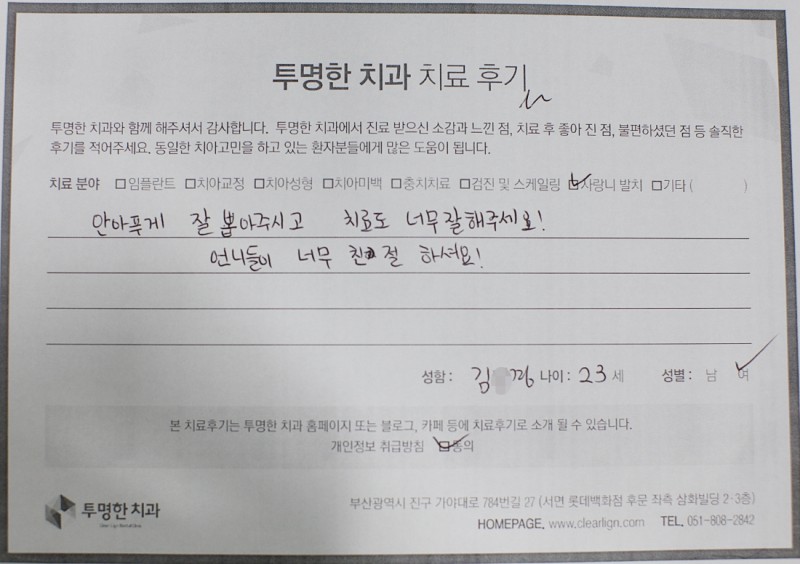 투명한 치과 치료 후기
투명한 치과와 함께 해주셔서 감사합니다. 투명한 치과에서 진료 받으신 소감과 느낀 점, 치료 후 좋아 진 점, 불편하셨던 점 등 솔직한
후기를 적어주세요. 동일한 치아고민을 하고 있는 환자분들에게 많은 도움이 됩니다.
치료 분야 □임플란트 □치아교정 □치아성형 □치아미백 □충치치료 □검진 및 스케일링 ☑사랑니 발치 □기타 ( )
안아푸게 잘 뽑아주시고 치료도 너무잘해주세요!
언니들이 너무 친절 하셔요!
성함 : 김 나이 : 23 세 성별 : 남 여
본 치료후기는 투명한 치과 홈페이지 또는 블로그, 카페 등에 치료후기로 소개 될 수 있습니다.
개인정보 취급방침 ☑동의
투명한 치과
부산광역시 진구 가야대로 784번길 27 (서면 롯데백화점 후문 좌측 삼화빌딩 2-3층)
HOMEPAGE. www.clearlign.com TEL. 051-808-2842